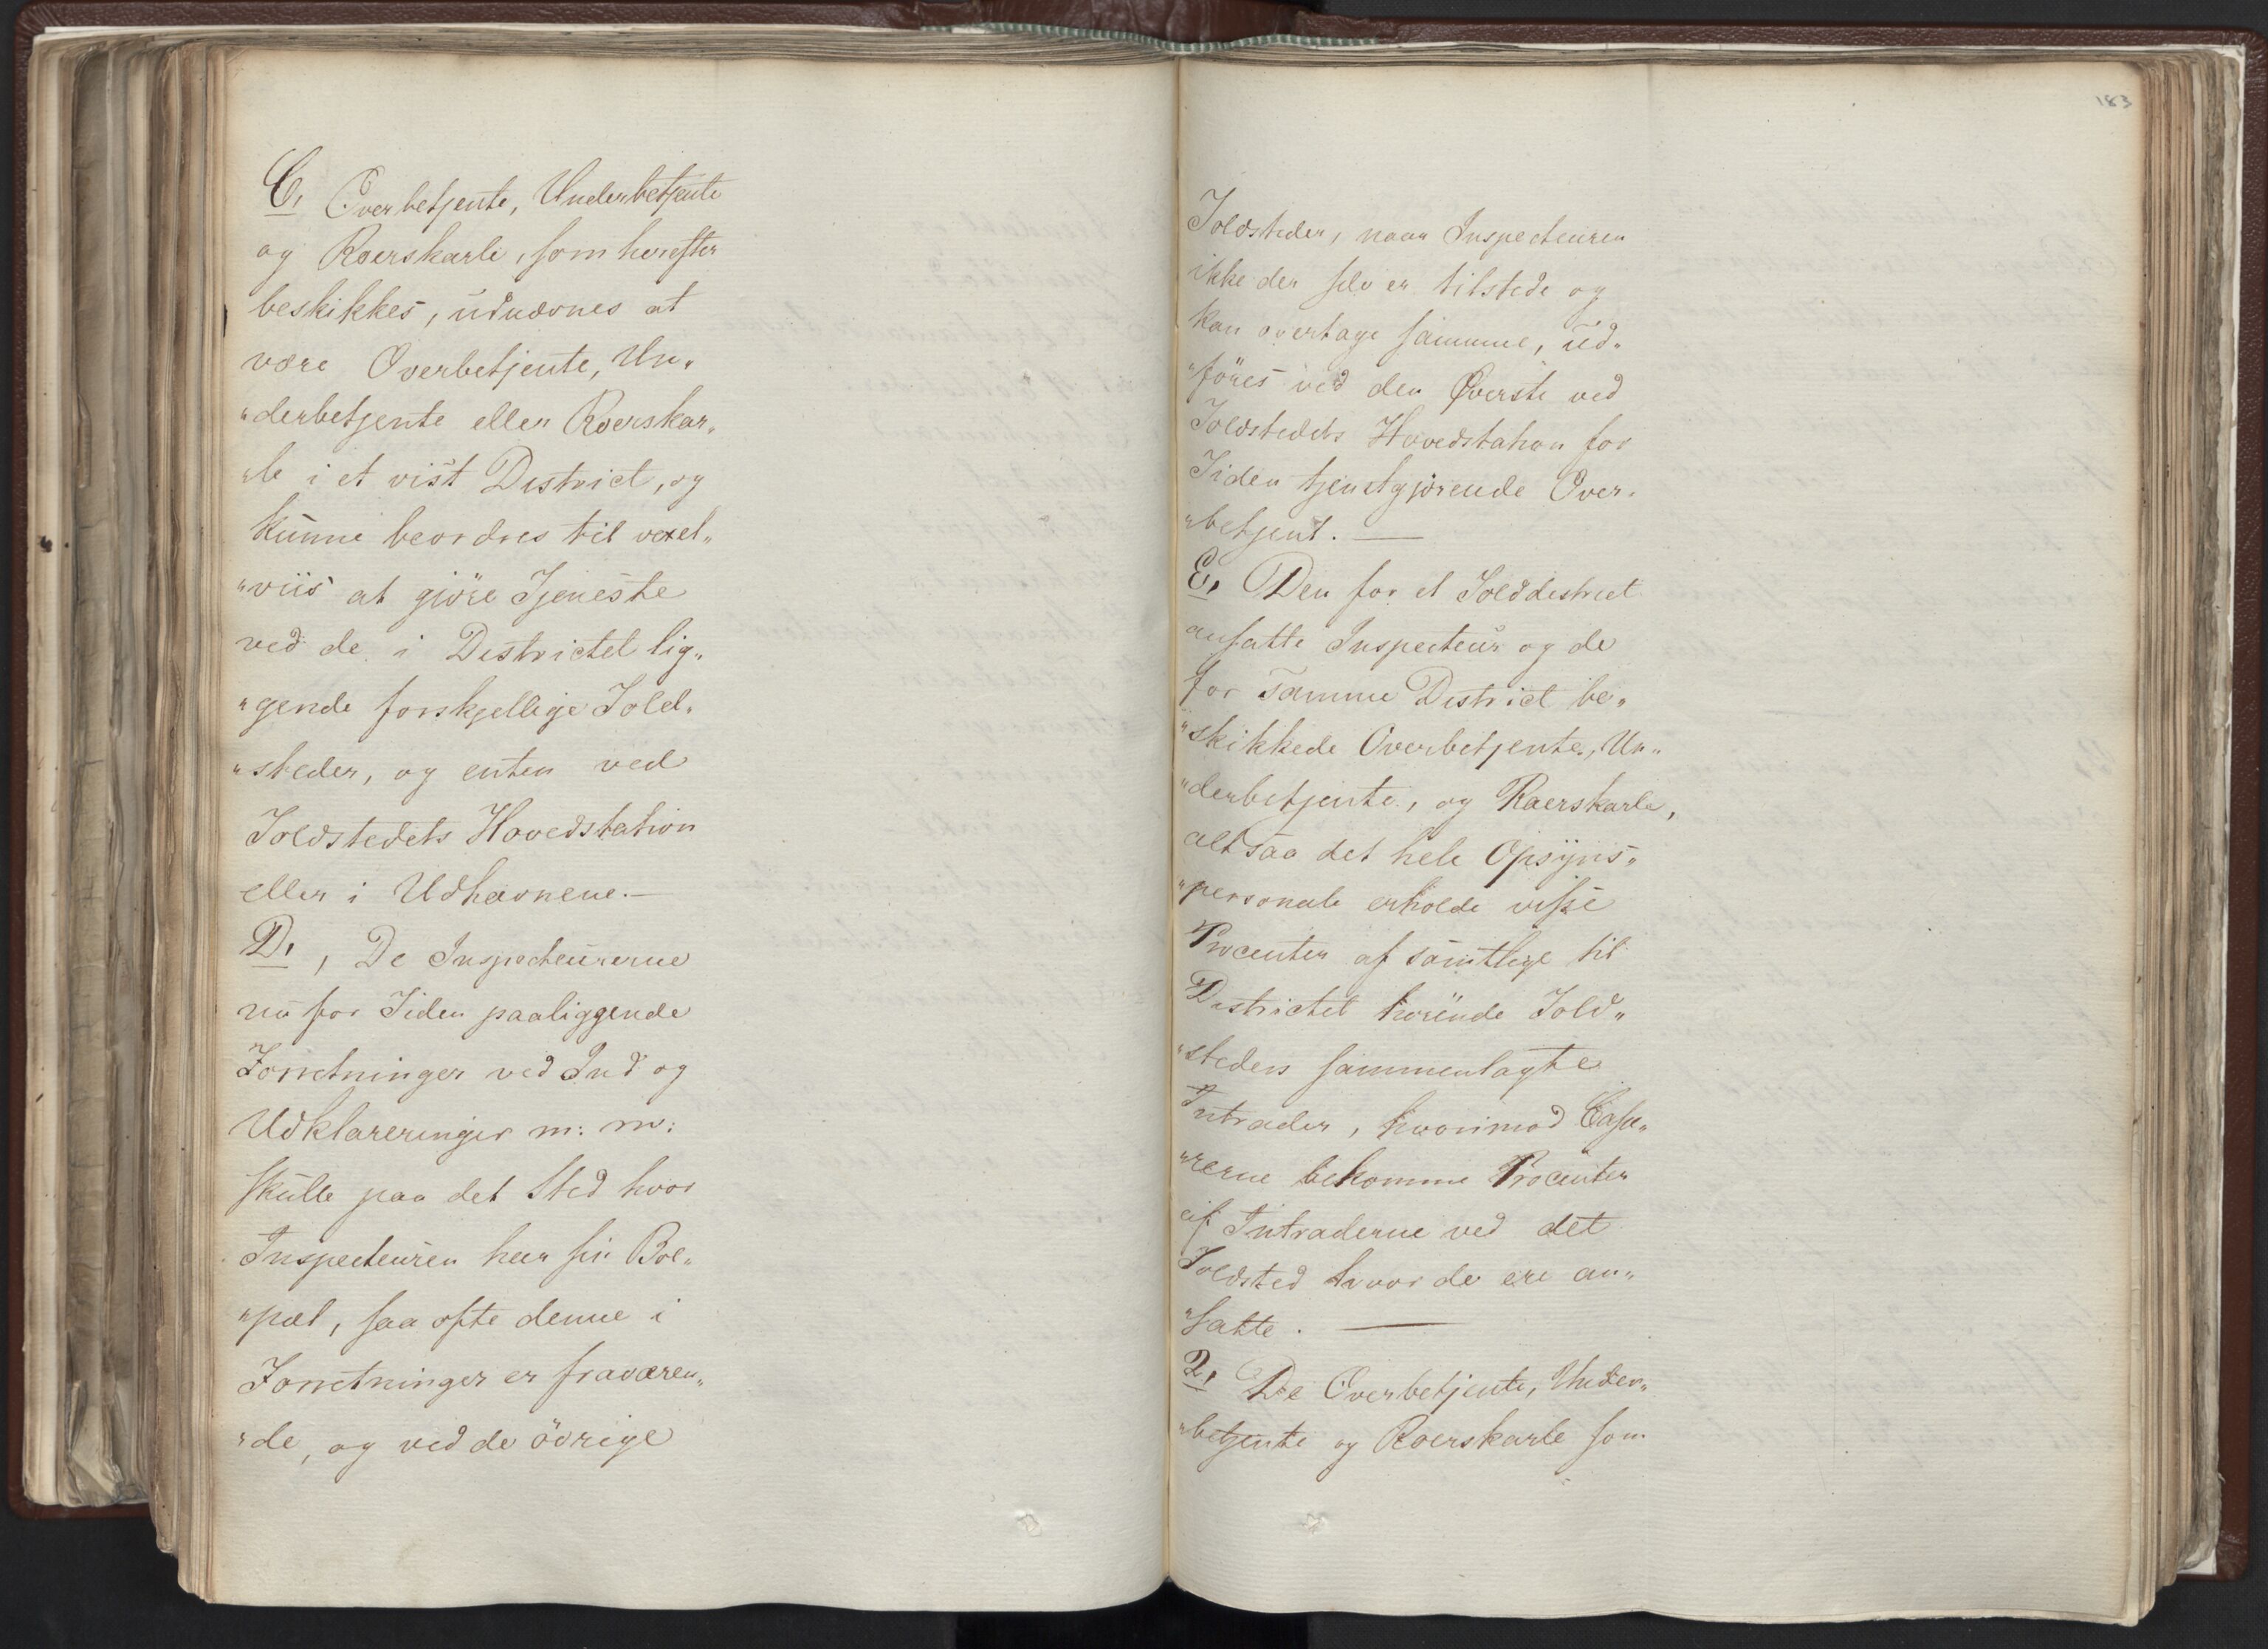 C, Overbetjente, Underbetjente
og Roerskarle, som herefter
beskikkes, udnævnes at
være Overbetjente, Un„
„derbetjente eller Roerskar„
„le i et vist District, og
kunne beordres til vexel„
„viis at gjöre Tjeneste
ved de i Districtet lig„
„gende forskjellige Told„
„steder, og enten ved
Toldstedets Hovedstation
eller i Udhavnene.—
D, , De Inspecteurerne
nu for Tiden paaliggende
Forretninger ved Ind og
Udklareringer m: m:
skulle paa det Sted hvor
Inspecteuren har sin Boe„
„pæl, saa ofte denne i
Forretninger er fraværen„
„de, og ved de övrige
183
Toldsteder, naar Inspecteuren
ikke der selv er tilstede og
kan overtage samme, ud„
„föres ved den Øverste ved
Toldstedets Hovedstation for
Tiden tjenstgjörende Over„
„betjent. —
E, Den for et Tolddistrict
ansatte Inspecteur og de
for samme District be„
„skikkede Overbetjente, Un„
„derbetjente, og Roerskarle,
altsaa det hele Opsyns„
„personale erholde visse
Procenter af samtlige til
Districtet hörende Told„
„steders sammenlagte
Intrader, hvorimod Casse„
„rerne bekomme Procenter
af Intraderne ved det
Toldsted hvor de ere an„
„satte. —
2, De Overbetjente, Under„
„betjente og Roerskarle som